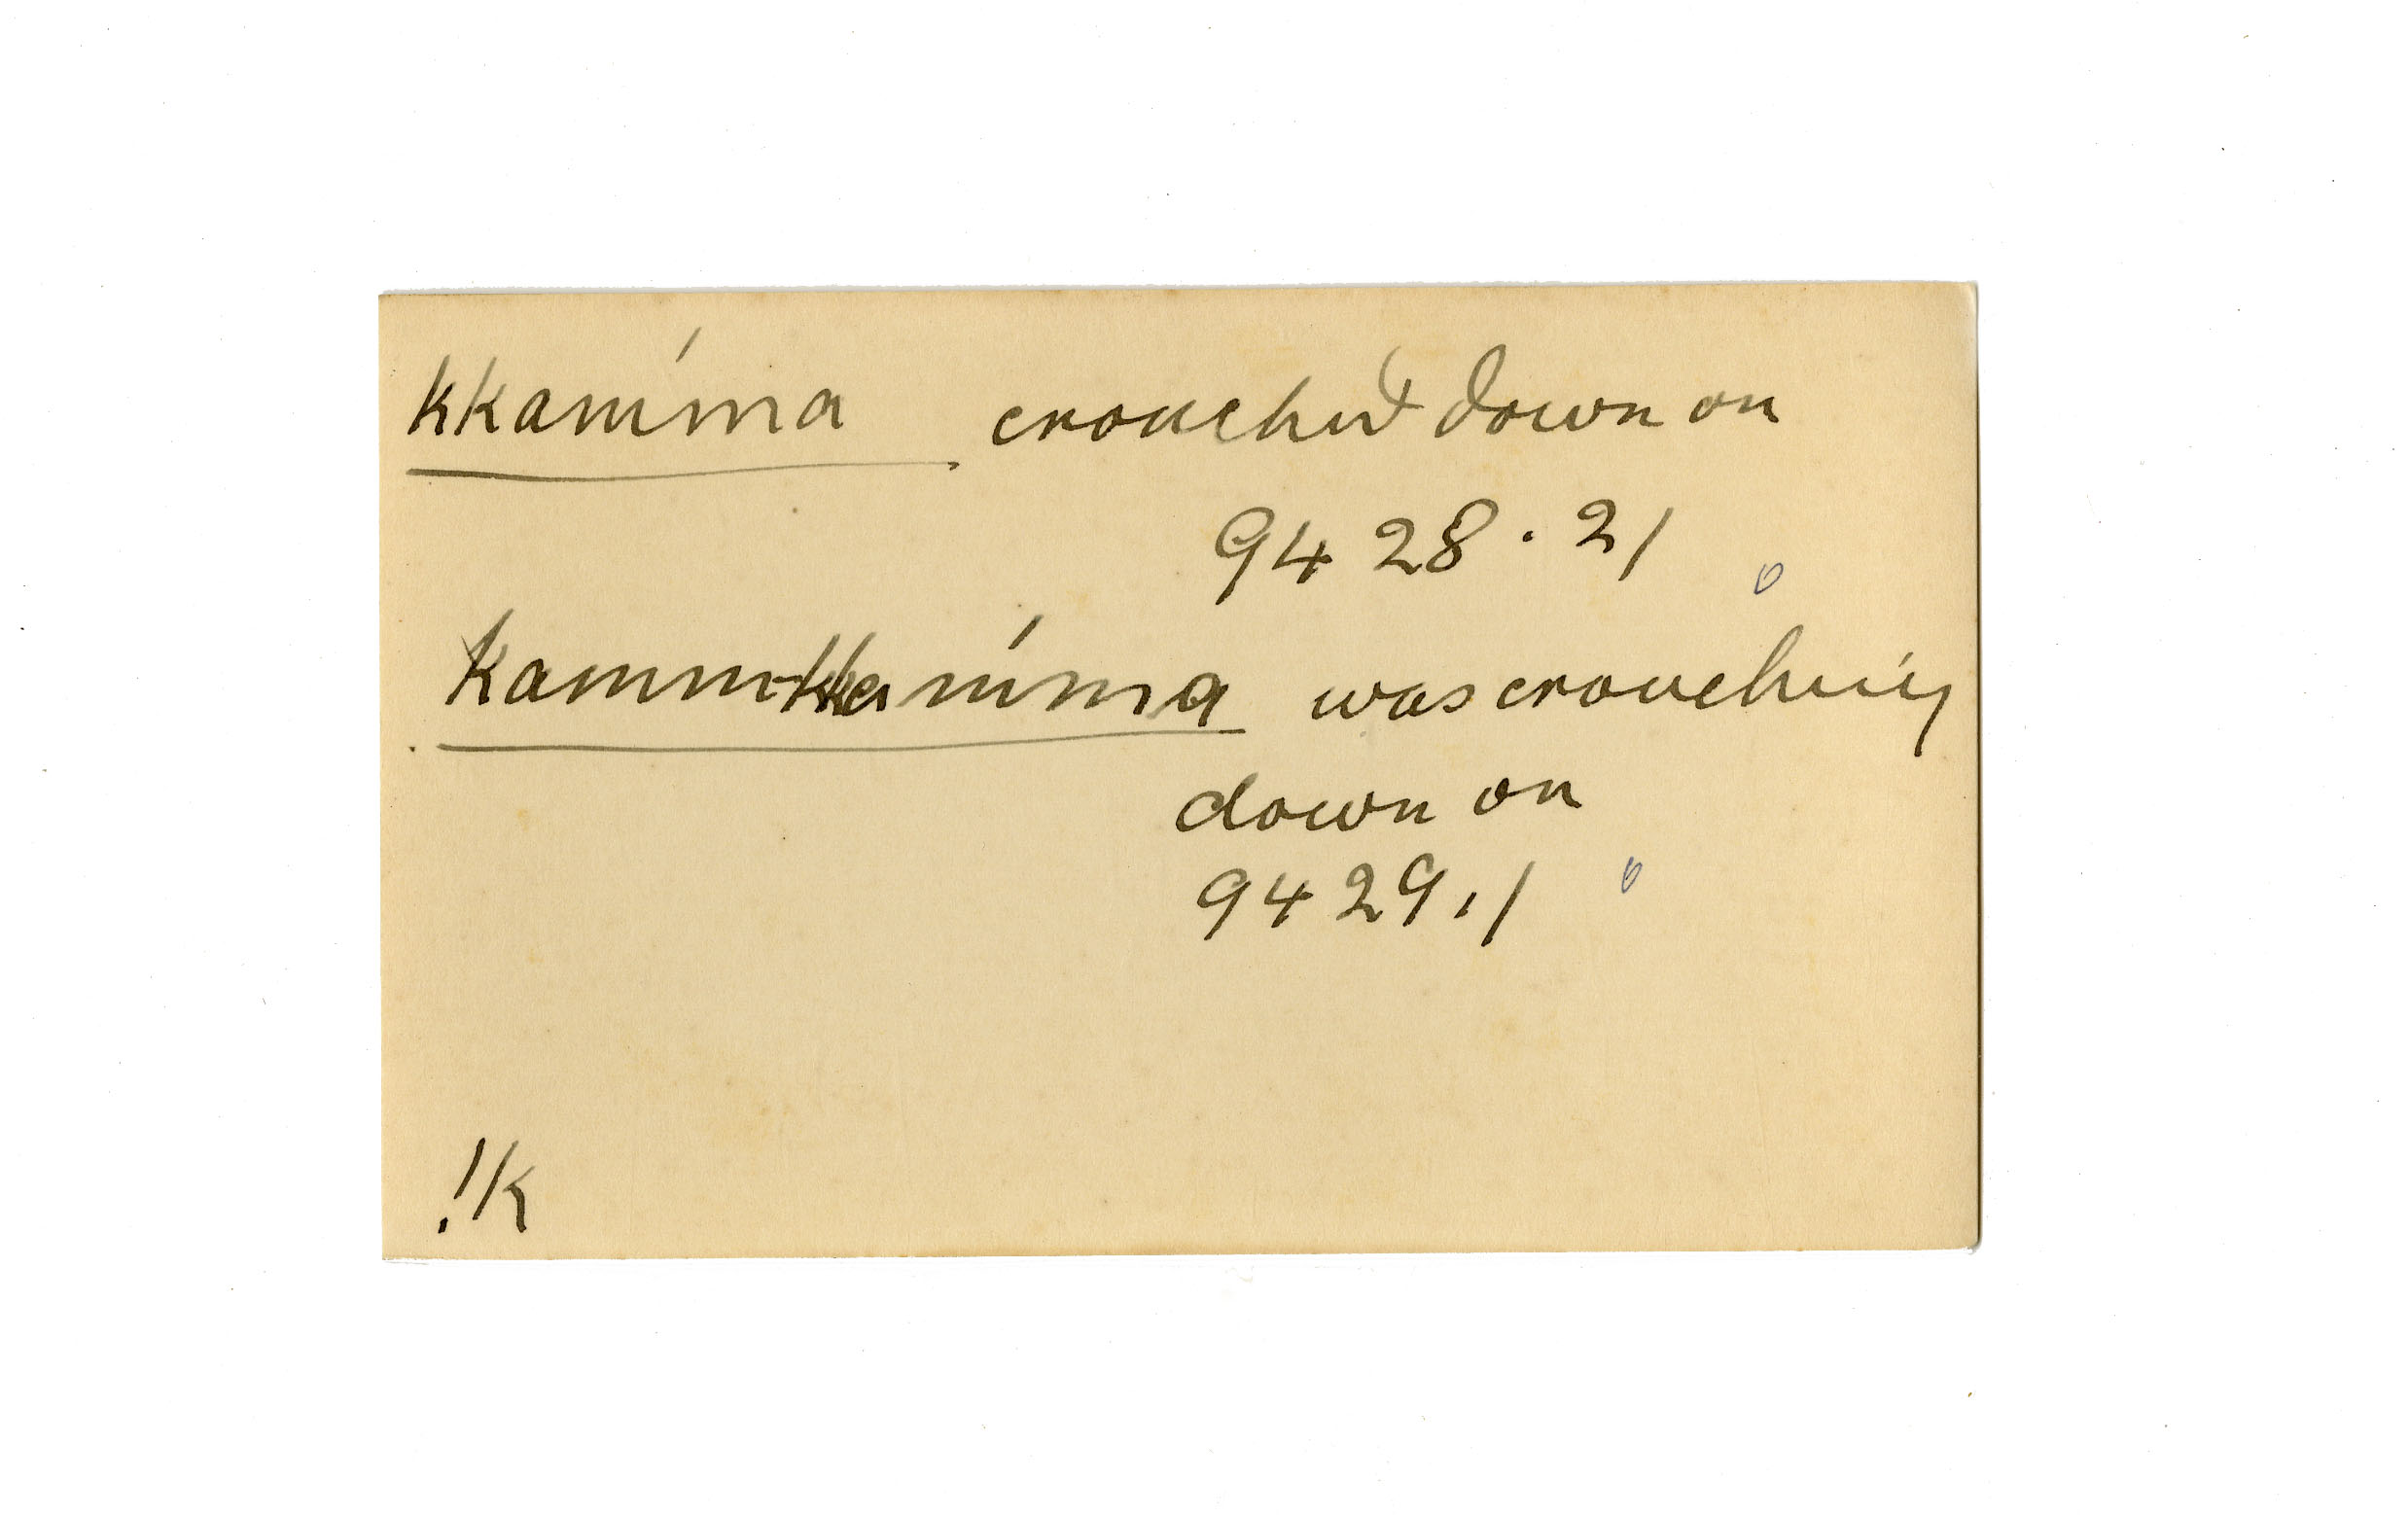 kkam'ma crouched down on
9428.21
kamm-kkam'ma was crouching
down on
9429.1
!k